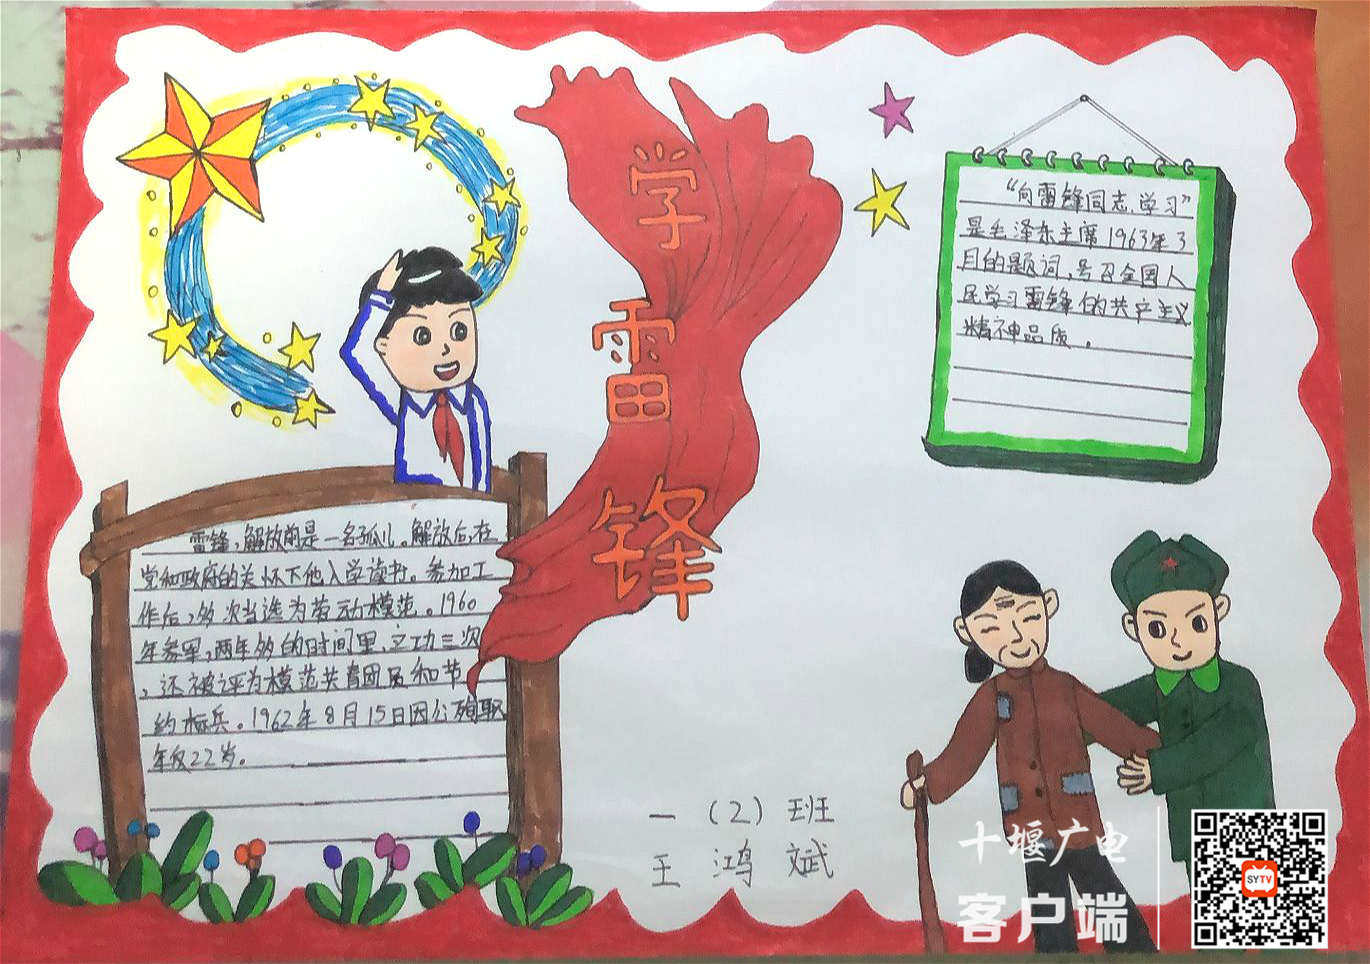 学
雷
锋
“向雷锋同志学习”
是毛泽东主席1963年3
月的题词，号召全国人
民学习雷锋的共产主义
精神品质。
雷锋，解放前是一名孤儿。解放后，在
党和政府的关怀下他入学读书。参加工
作后，多次当选为劳动模范。1960
年参军，两年多的时间里，立功三次
，还被评为模范共青团员和节
约标兵。1962年8月15日因公殉职
年仅22岁。
一（2）班
王鸿斌
十堰广电
客户端
SYTV